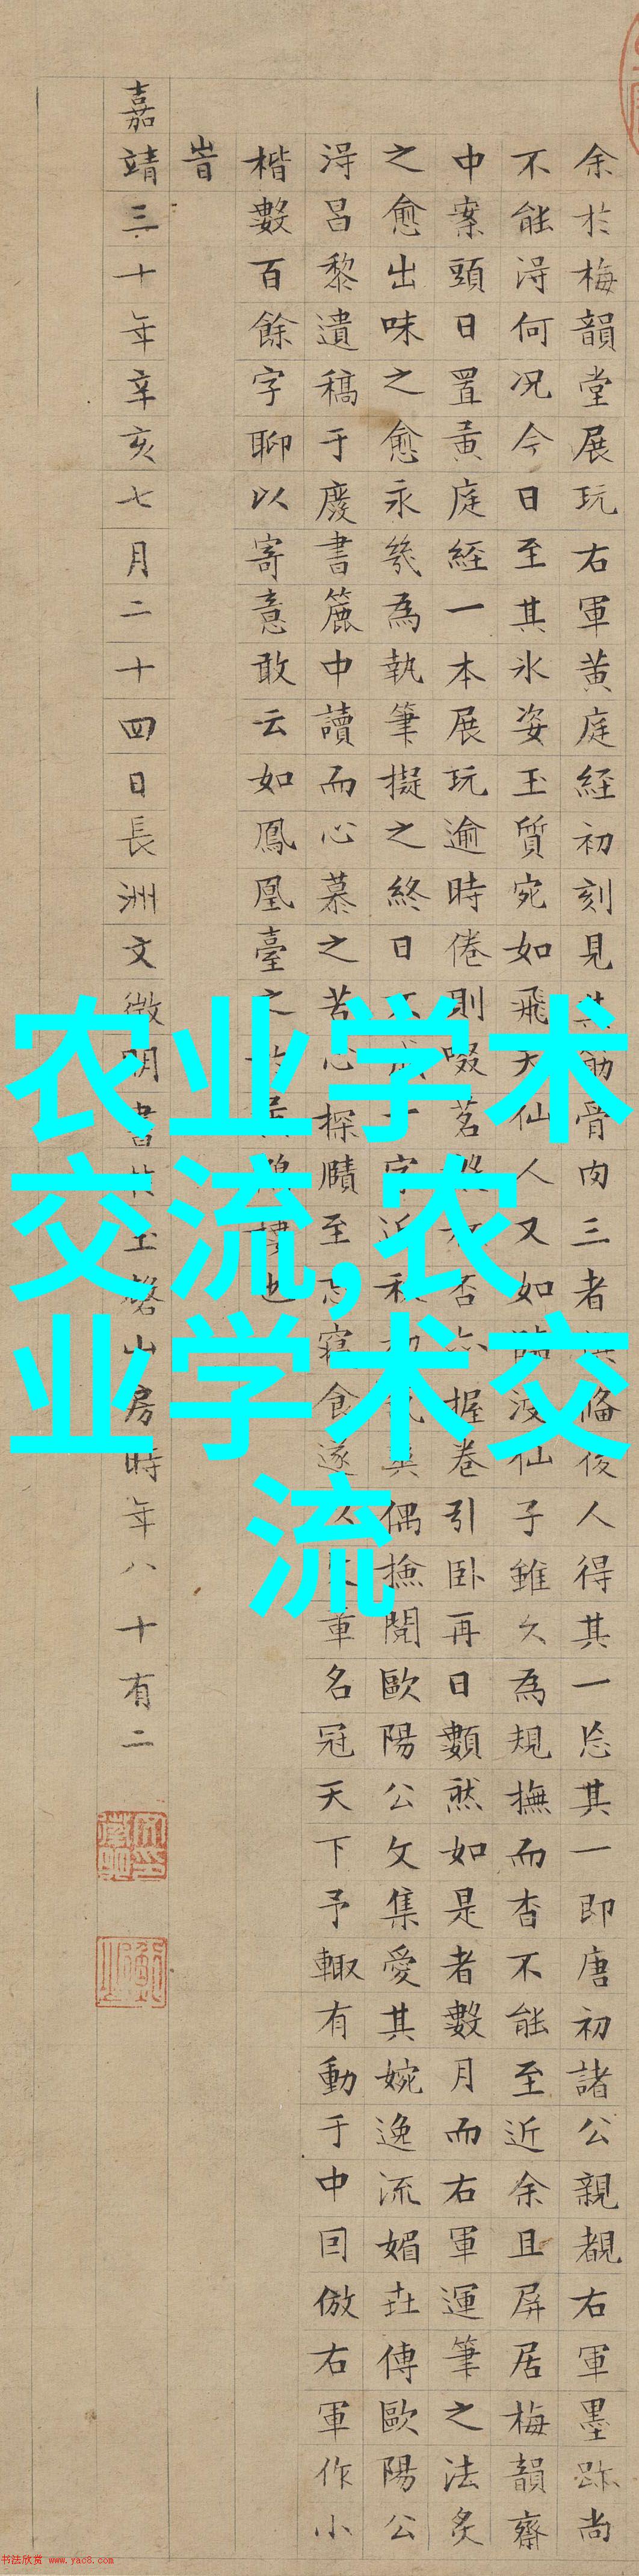 余於梅韻堂展玩右軍黄庭経初刻見其筋骨肉三者俱備後人得其一忘其一即唐初諸公親覩右軍墨跡尚
不能淂何况今日至其氷姿玉質宛如飛天仙人又如臨波仙子雖久為規撫而杳不能至近余且屏居梅韻齋
中案頭日置黄庭経一本展玩逾時倦則啜茗否握卷引卧再日數然如是者數月而右軍運筆之法炙
之愈出味之愈永幾為執筆擬之終日不成一字近秋偶撿閲歐陽公文集愛其婉逸流媚且傳歐陽公
淂昌黎遺稿于廢書簏中讀而心慕之苦心探賾至忘寢食遂以文章名冠天下予輙有動于中囙倣右軍作小
楷數百餘字聊以寄意敢云如鳳凰臺之於黄鶴樓也
旹
嘉靖三十年辛亥七月二十四日長洲文徵明書於玉磬山房時年八十有二
农业学术
交流,农
业学术交
流
书法欣赏 www.yac8.com